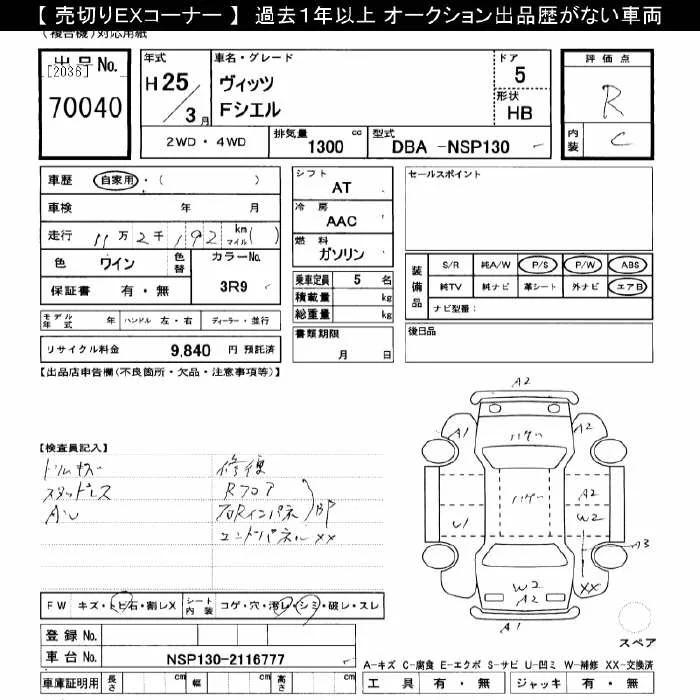 【 売切りEXコーナー 】 過去1年以上 オークション出品歴がない車両
(複合機)対応用紙
出 品 No.
[2036]
70040
年式
H 25 / 3月
車名・グレード
ヴィッツ
Fシエル
ドア
5
形状
HB
評 価 点
R
内装
C
2WD ・ 4WD
排気量 cc
1300
型式
DBA -NSP130
車歴 自家用・( )
車検 年 月
走行 11万2千192 km マイル( )
色 ワイン
色替
カラーNo.
3R9
保証書 有・無
モデル年式 年
ハンドル 左・右
ディーラー・並行
リサイクル料金 9,840 円 預託済
シフト
AT
冷房
AAC
燃料
ガソリン
乗車定員 5 名
積載量 kg
総重量 kg
書類期限
月 日
セールスポイント
装備品
S/R 純A/W P/S P/W ABS
純TV 純ナビ 革シート 外ナビ エアB
ナビ型番:
後日品
【出品店申告欄(不良箇所・欠品・注意事項等)】
【検査員記入】
スタッドレス
修復
Rフロア
右Rインパネ
BP
エンドパネル XX
A2
A1
A2
ハゲー
ハゲー
A2
W2
U1
A3
XX
W2
A2
A1
スペア
FW キズ・トビ石・割レX
シート内装 コゲ・穴・汚レ・シミ・破レ・スレ
登 録 No.
車 台 No. NSP130-2116777
車庫証明用 長さ cm 幅 cm 高さ cm
A-キズ C-腐食 E-エクボ S-サビ U-凹ミ W-補修 XX-交換済
工 具 有・無 ジャッキ 有・無